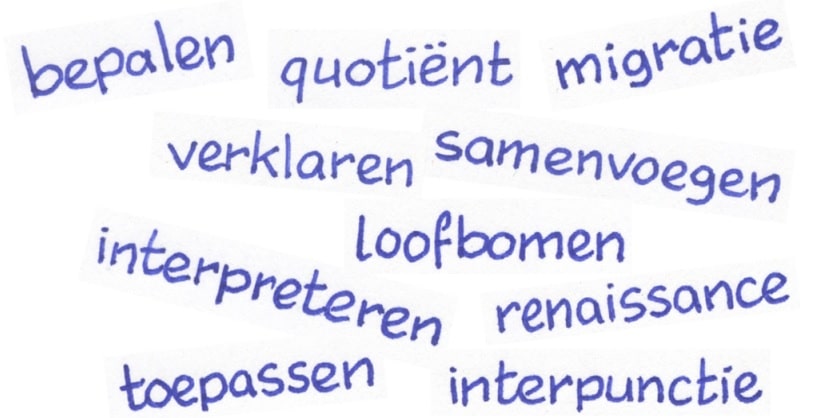 bepalen quotiënt migratie
verklaren samenvoegen
loofbomen
interpreteren renaissance
toepassen interpunctie